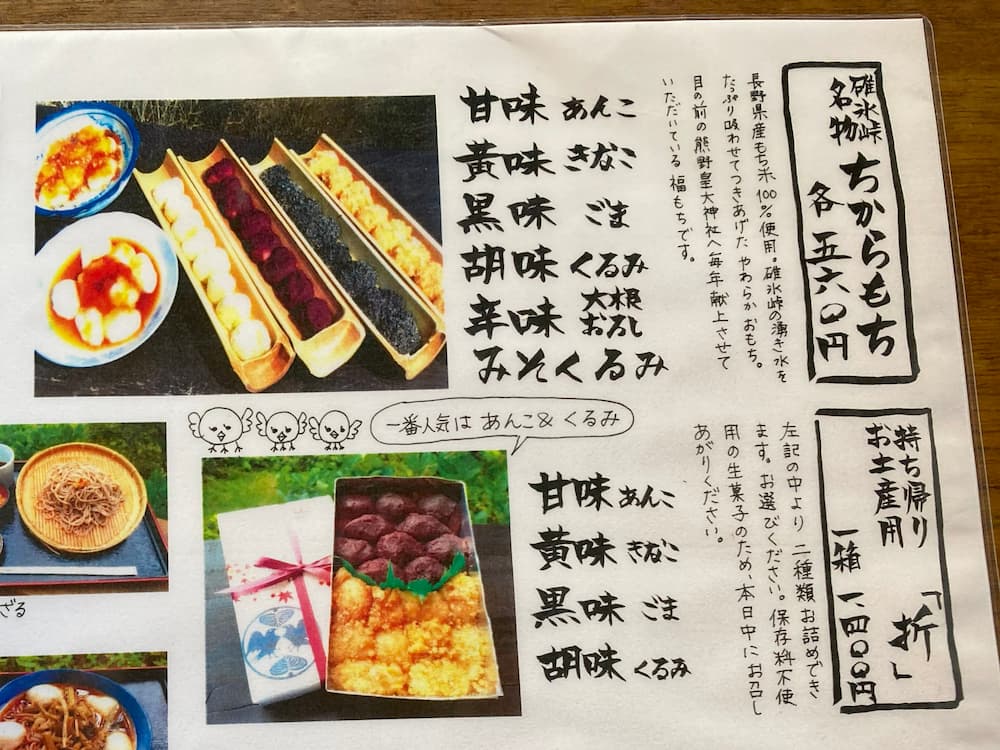 碓氷峠
名物
ちからもち
各 五六〇円
長野県産もち米100%使用。碓氷峠の湧き水を
たっぷり吸わせてつきあげた やわらかおもち。
目の前の熊野皇大神社へ毎年献上させて
いただいている 福もちです。
甘味 あんこ
黄味 きなこ
黒味 ごま
胡味 くるみ
辛味 大根おろし
みそくるみ
持ち帰り
お土産用
「折」
一箱 一、四〇〇円
左記の中より 二種類お詰めでき
ます。お選びください。保存料不使
用の生菓子のため、本日中にお召し
あがりください。
一番人気は あんこ & くるみ
甘味 あんこ
黄味 きなこ
黒味 ごま
胡味 くるみ
ざる